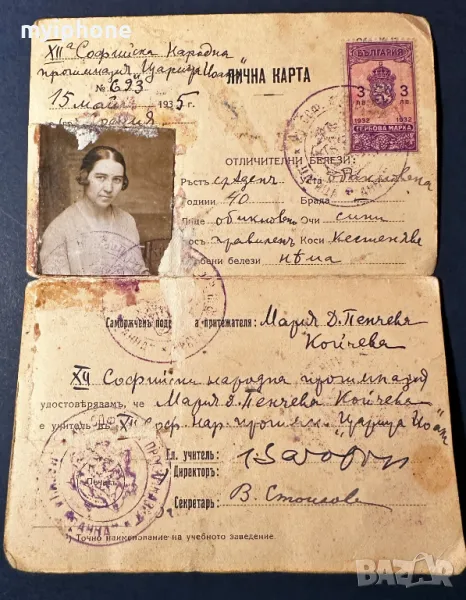 myiphone
XIIа Софийска Народна
прогимназия "Царица Иоанна"
ЛИЧНА КАРТА
№ 693
15 май 1935 г.
гр. София
БЪЛГАРИЯ
3 3
ЛВ ЛВ
1932 1932
ГЕРБОВА МАРКА
ОТЛИЧИТЕЛНИ БЕЛЕЗИ:
Ръстъ среденъ Уста обикновена
Години 40 Брада
Лице обикновено Очи сини
Носъ правиленъ Коси кестеняви
бени белези нѣма
Саморѫченъ подп а притежателя: Мария Д. Пенчева
Койчева
XII Софийска народна прогимназия
удостовѣрязамъ, че Мария Д. Пенчева Койчева
е учитель въ XII соф. нар. прогим. "Царица Иоанна"
Гл. учитель:
Директоръ:
Секретарь: В. Стоисова
Печатъ
) Точно наименование на учебното заведение.
BAZAR.bg